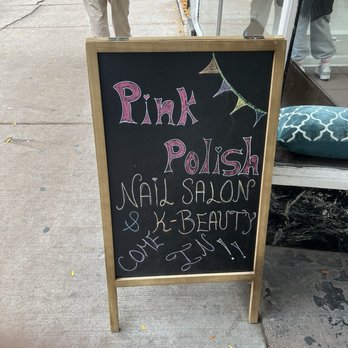 Pink
Polish
NAIL SALON
& K-BEAUTY
COME IN!!